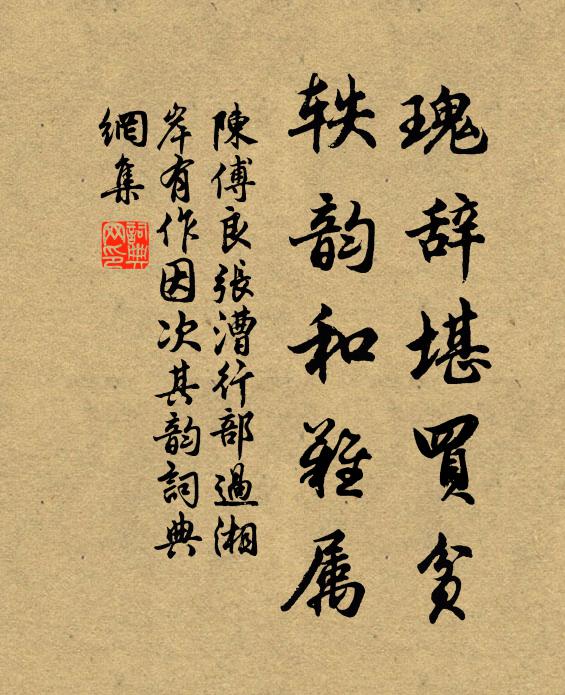 瑰辞堪買貧
轶韵和難属
陳傅良張漕行部過湘
岸有作因次其韵詞典
網集
詞典
网印